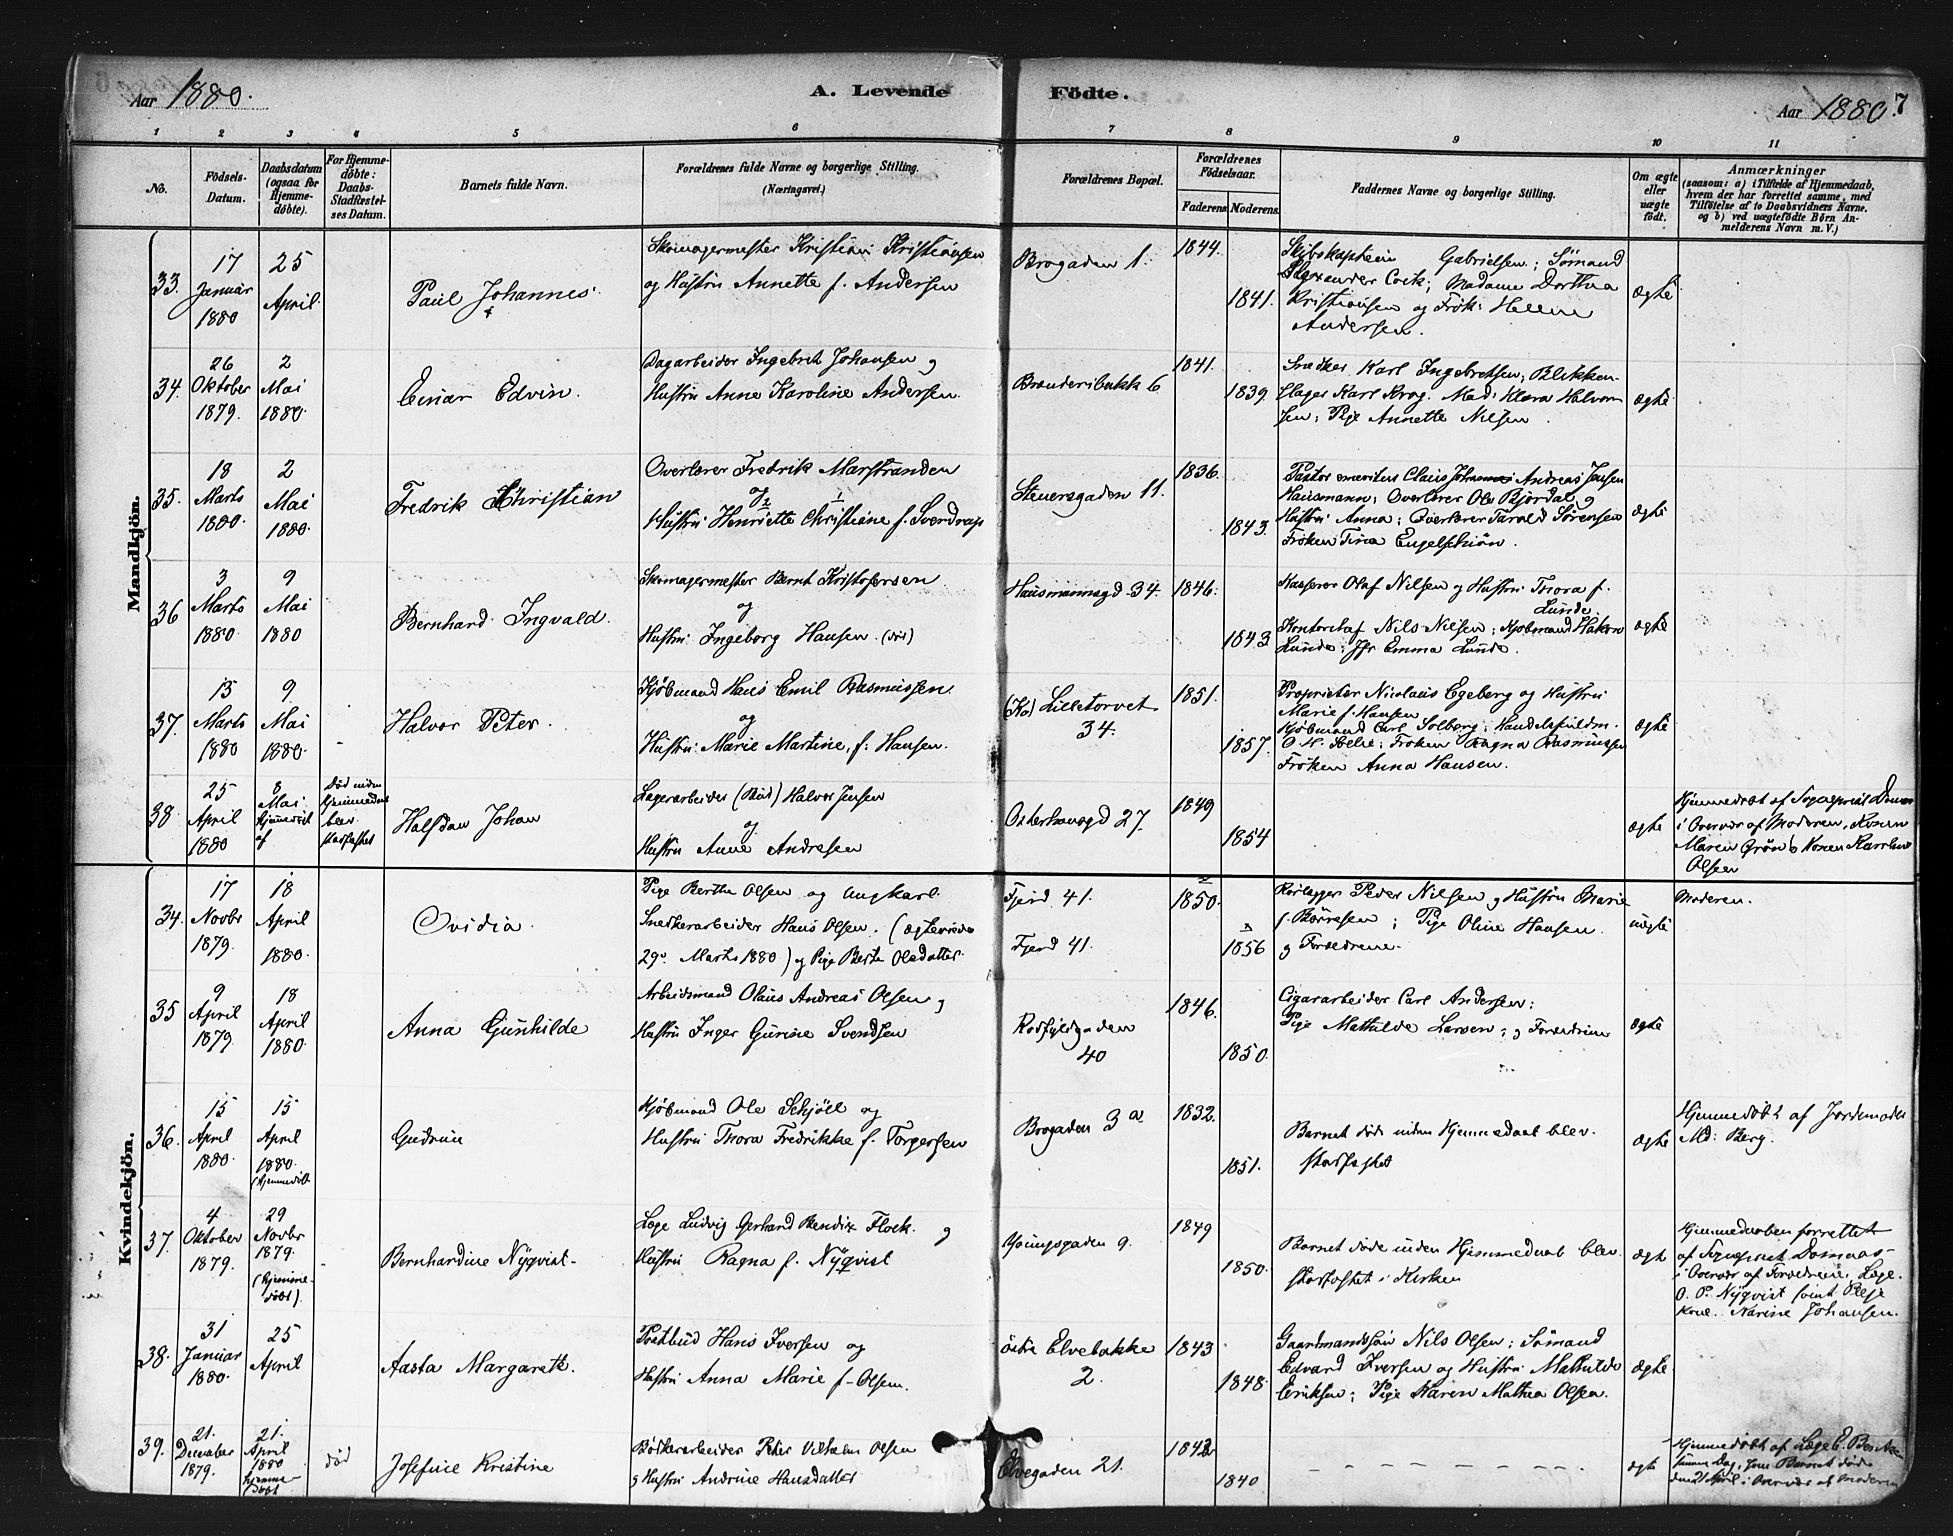 Aar 1880.
A. Levende Födte.
Aar 1880.
7
1 2 3 4 5 6 7 8 9 10 11
No.
Födsels-
Datum.
Daabsdatum
(ogsaa for
Hjemme-
döbte).
For Hjemme-
döbte:
Daabs-
Stadfæstel-
ses Datum.
Barnets fulde Navn.
Forældrenes fulde Navne og borgerlige Stilling.
(Næringsvei.)
Forældrenes Bopæl.
Forældrenes
Födselsaar.
Faderens. Moderens.
Faddernes Navne og borgerlige Stilling.
Om ægte
eller
uægte
födt.
Anmærkninger
(saasom: a) i Tilfælde af Hjemmedaab,
hvem der har forrettet samme, med
Tilföielse af to Daabsvidners Navne,
og b) ved uægtefödte Börn An-
melderens Navn m. V.)
Mandkjön.
33.
17
Januar
1880
25
April.
Paul Johannes.
Skomagermester Kristian Kristiansen
og Hustru Annette f. Andersen
Brogaden 1.
1844.
1841.
Skibskaptein Gabrielsen; Sømand
Alexander Cock; Madame Dorthea
Kristiansen og Frøk: Helene
Andersen.
Ægte
34.
26
Oktober
1879.
2
Mai
1880.
Einar Edvin.
Dagarbeider Ingebret Johansen og
Hustru Anne Karoline Andersen.
Brænderibakk 6
1841.
1839.
Snedker Karl Ingebretsen; Blikken-
slager Karl Krog. Mad: Klara Halvor-
sen; Pige Annette Nilsen.
Ægte
35.
18
Marts
1880.
2
Mai
1880.
Fredrik Christian
Overlærer Fredrik Marstranden
og
Hustru Henriette Christiane f. Sverdrup
Steenersgaden 11.
1836.
1843.
Pastor emeritus Claus Johannes Andreas Jensen
Hausmann; Overlærer Ole Bjørdal og
Hustru Anna; Overlærer Tarald Sørensen
Frøken Tina Engelschiøn.
Ægte
36
3
Marts
1880.
9
Mai
1880
Bernhard Ingvald.
Skomagermester Bernt Kristofersen
og
Hustru Ingeborg Hansen.
Hausmannsgd 34.
1846.
1843
Kasserer Olaf Nilsen og Hustru Thora f.
Lunde.
Kontorchef Nils Nilsen; Kjøbmand Hakon
Lunde; Jfr Emma Lunde.
Ægte
37.
15
Marts
1880
9
Mai
1880.
Halvor Peter.
Kjöbmand Hans Emil Rasmussen.
og
Hustru Marie Martine, f. Hansen.
Lilletorvet
34.
1851.
1857.
Proprietær Nicolaus Egeberg og Hustru
Marie f. Hansen
Kjøbmand Carl Solberg; Handelsfuldm.
Frøken Ragna Rasmussen
Frøken Anna Hansen.
Ægte
38
25
April
1880
8
Mai
Hjemmedöbt
af
Död inden
Hjemmedaab
blev
stadfæstet
Halfdan Johan
Lagerarbeider (Bud) Halvor Jensen
og
Hustru Anne Andresen
Osterhausgd 27.
1849
1854
ægte
Hjemmedøbt af Sogneprest Domaas
i Overvær af Moderen, Konen
Maren Grøn & Konen Karoline
Olsen
Kvindekjön.
34.
17
Novbr
1879.
18
April
1880.
Ovidia.
Pige Berthe Olsen og Ungkarl
Snedkerarbeider Hans Olsen. (Ægteviede
29. Marts 1880) og Pige Berte Olsdatter.
Fjerd 41.
Fjerd 41.
1850.
1856
Rørlægger Peder Nilsen og Hustru Marie
f. Børresen; Pige Oline Hansen.
og Forældrene.
uægte
Moderen.
35
9
April
1879.
18
April
1880.
Anna Gunhilde
Arbeidsmand Olaus Andreas Olsen og
Hustru Inger Gurine Svendsen
Rødfyldgaden
40
1846.
1850.
Cigararbeider Carl Andersen;
Pige Mathilde Larsen; og Forældrene
Ægte
36.
15
April
1880.
15
April
1880.
(Hjemmedöbt
Gudrun
Kjöbmand Ole Schjöll og
Hustru Thora Fredrikke f. Torgersen
Brogaden 3a
1832.
1851.
Barnet döde inden Hjemmedaab blev.
stadfæstet
Ægte
Hjemmedöbt af Jordemoder
Md: Berg.
37.
4
Oktober
1879.
29
Novbr
1879.
(Hjemme-
döbt).
Bernhardine Nÿqvist.
Læge Ludvig Gerhard Bendix Flock. og
Hustru Ragna f. Nÿqvist
Youngsgaden 9.
1849
1850.
Barnet døde inden Hjemmedaab blev.
stadfæstet i Kirken
Ægte
Hjemmedaaben forrettet
af Sogneprest Domaas-
i Overvær af Forældrene, Læge.
O. P. Nÿqvist samt Pleje
kone. Narine Johansen.
38.
31
Januar
1880.
25
April
Aasta Margarete.
Postbud Hans Iversen og
Hustru Anna Marie f. Olsen.
østre Elvebakke
2.
1843
1848.
Gaardmandssøn Nils Olsen; Sömand
Edvard Iversen og Hustru Mathilde
Eriksen; Pige Karen Mathea Olsen.
Ægte
39.
21.
December
1879.
21.
April
1880
hjemme-
døbt
død
Josefine Kristine
Bödkerarbeider Peter Vilhelm Olsen
og Hustru Andrine Hansdatter
Elvegaden 21.
1842
1840
ægte
Hjemmedøbt af Læge E. Bentzen
samme Dag, som Barnet døde
den 21 April i Overvær af Moderen